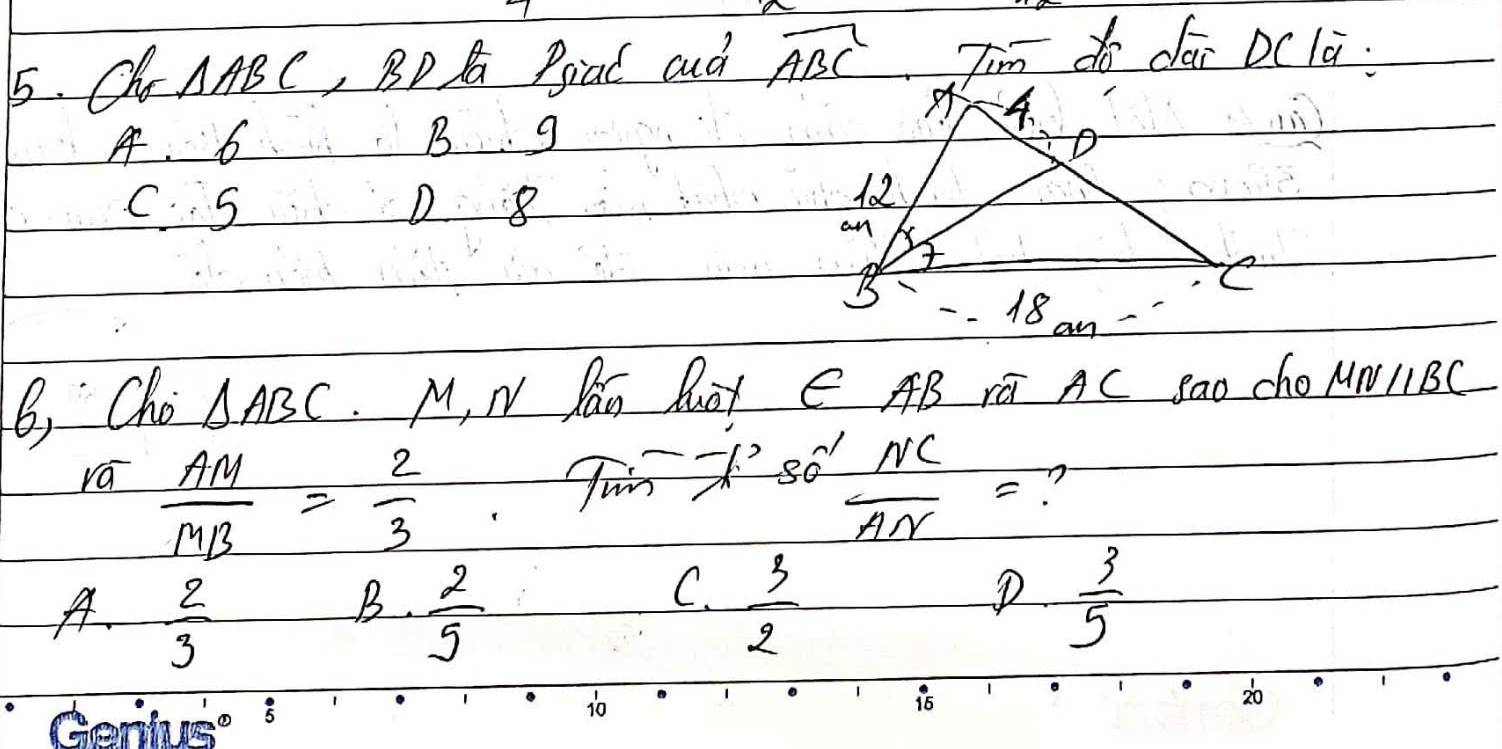 5. Cho ΔABC, BD là Pgiác cuả ABC. Tìm độ dài DC là:
A. 6 B. 9
C. 5 D. 8
A 4 D
12 cm
B 18 cm C
6, Cho ΔABC. M, N lần lượt ∈ AB và AC sao cho MN//BC
và AM/MB = 2/3. Tìm tỉ số NC/AN = ?
A. 2/3 B. 2/5 C. 3/2 D. 3/5
5 10 15 20
Genius®